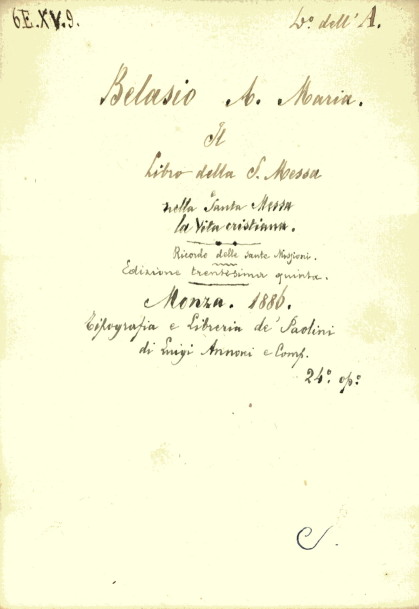 6.E.XV.9.
D.º dell'A.
Belasio A. Maria.
Il
Libro della S. Messa
nella Santa Messa
è la Vita cristiana.
Ricordo delle sante Missioni.
Edizione trentesima quinta.
Monza. 1886.
Tipografia e Libreria de' Paolini
di Luigi Annoni e Comp.
24.º op.º